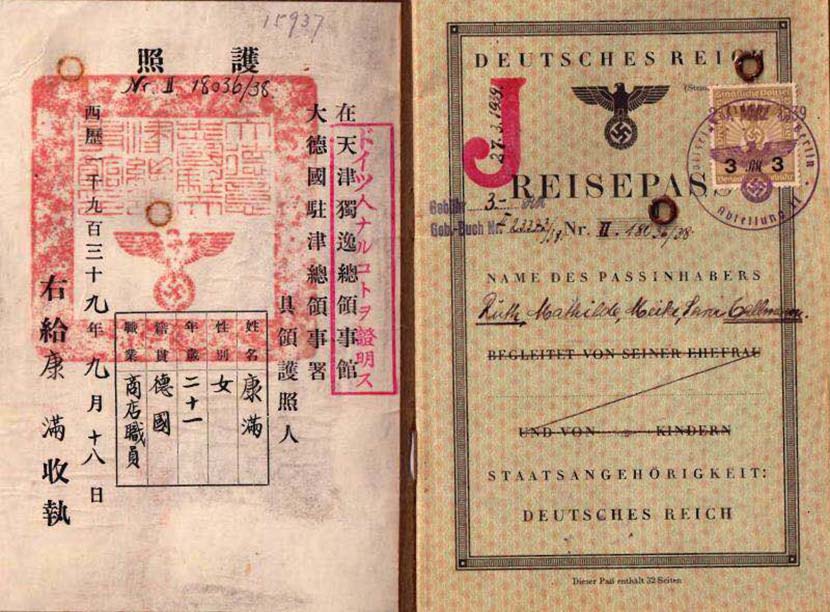 15937
護照
Nr. II 18036/38
ドイツ人ナルコトヲ證明ス
在天津獨逸總領事館
大德國駐津總領事署
具領護照人
姓名 康滿
性別 女
年歲 二十一
籍貫 德國
職業 商店職員
西歷一千九百三十九年九月十八日
右給康滿收執
DEUTSCHES REICH
J
27.3.1939
3 RM 3
Abteilung II
REISEPAS
Gebühr 3.- RM
Geb.-Buch Nr.
Nr. II 18036/38
NAME DES PASSINHABERS
Ruth, Mathilde, Meike, Sara Callmann.
BEGLEITET VON SEINER EHEFRAU
UND VON KINDERN
STAATSANGEHÖRIGKEIT:
DEUTSCHES REICH
Dieser Paß enthält 32 Seiten